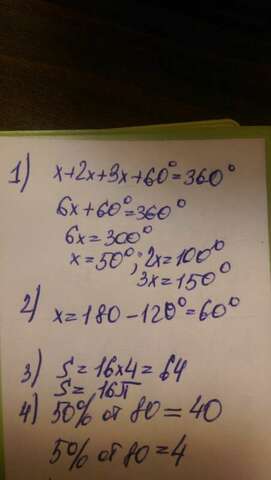 1) x+2x+3x+60°=360°
6x+60°=360°
6x=300°
x=50°; 2x=100°
3x=150°
2) x=180-120°=60°
3) S=16x4=64
S=16π
4) 50% от 80=40
5% от 80=4